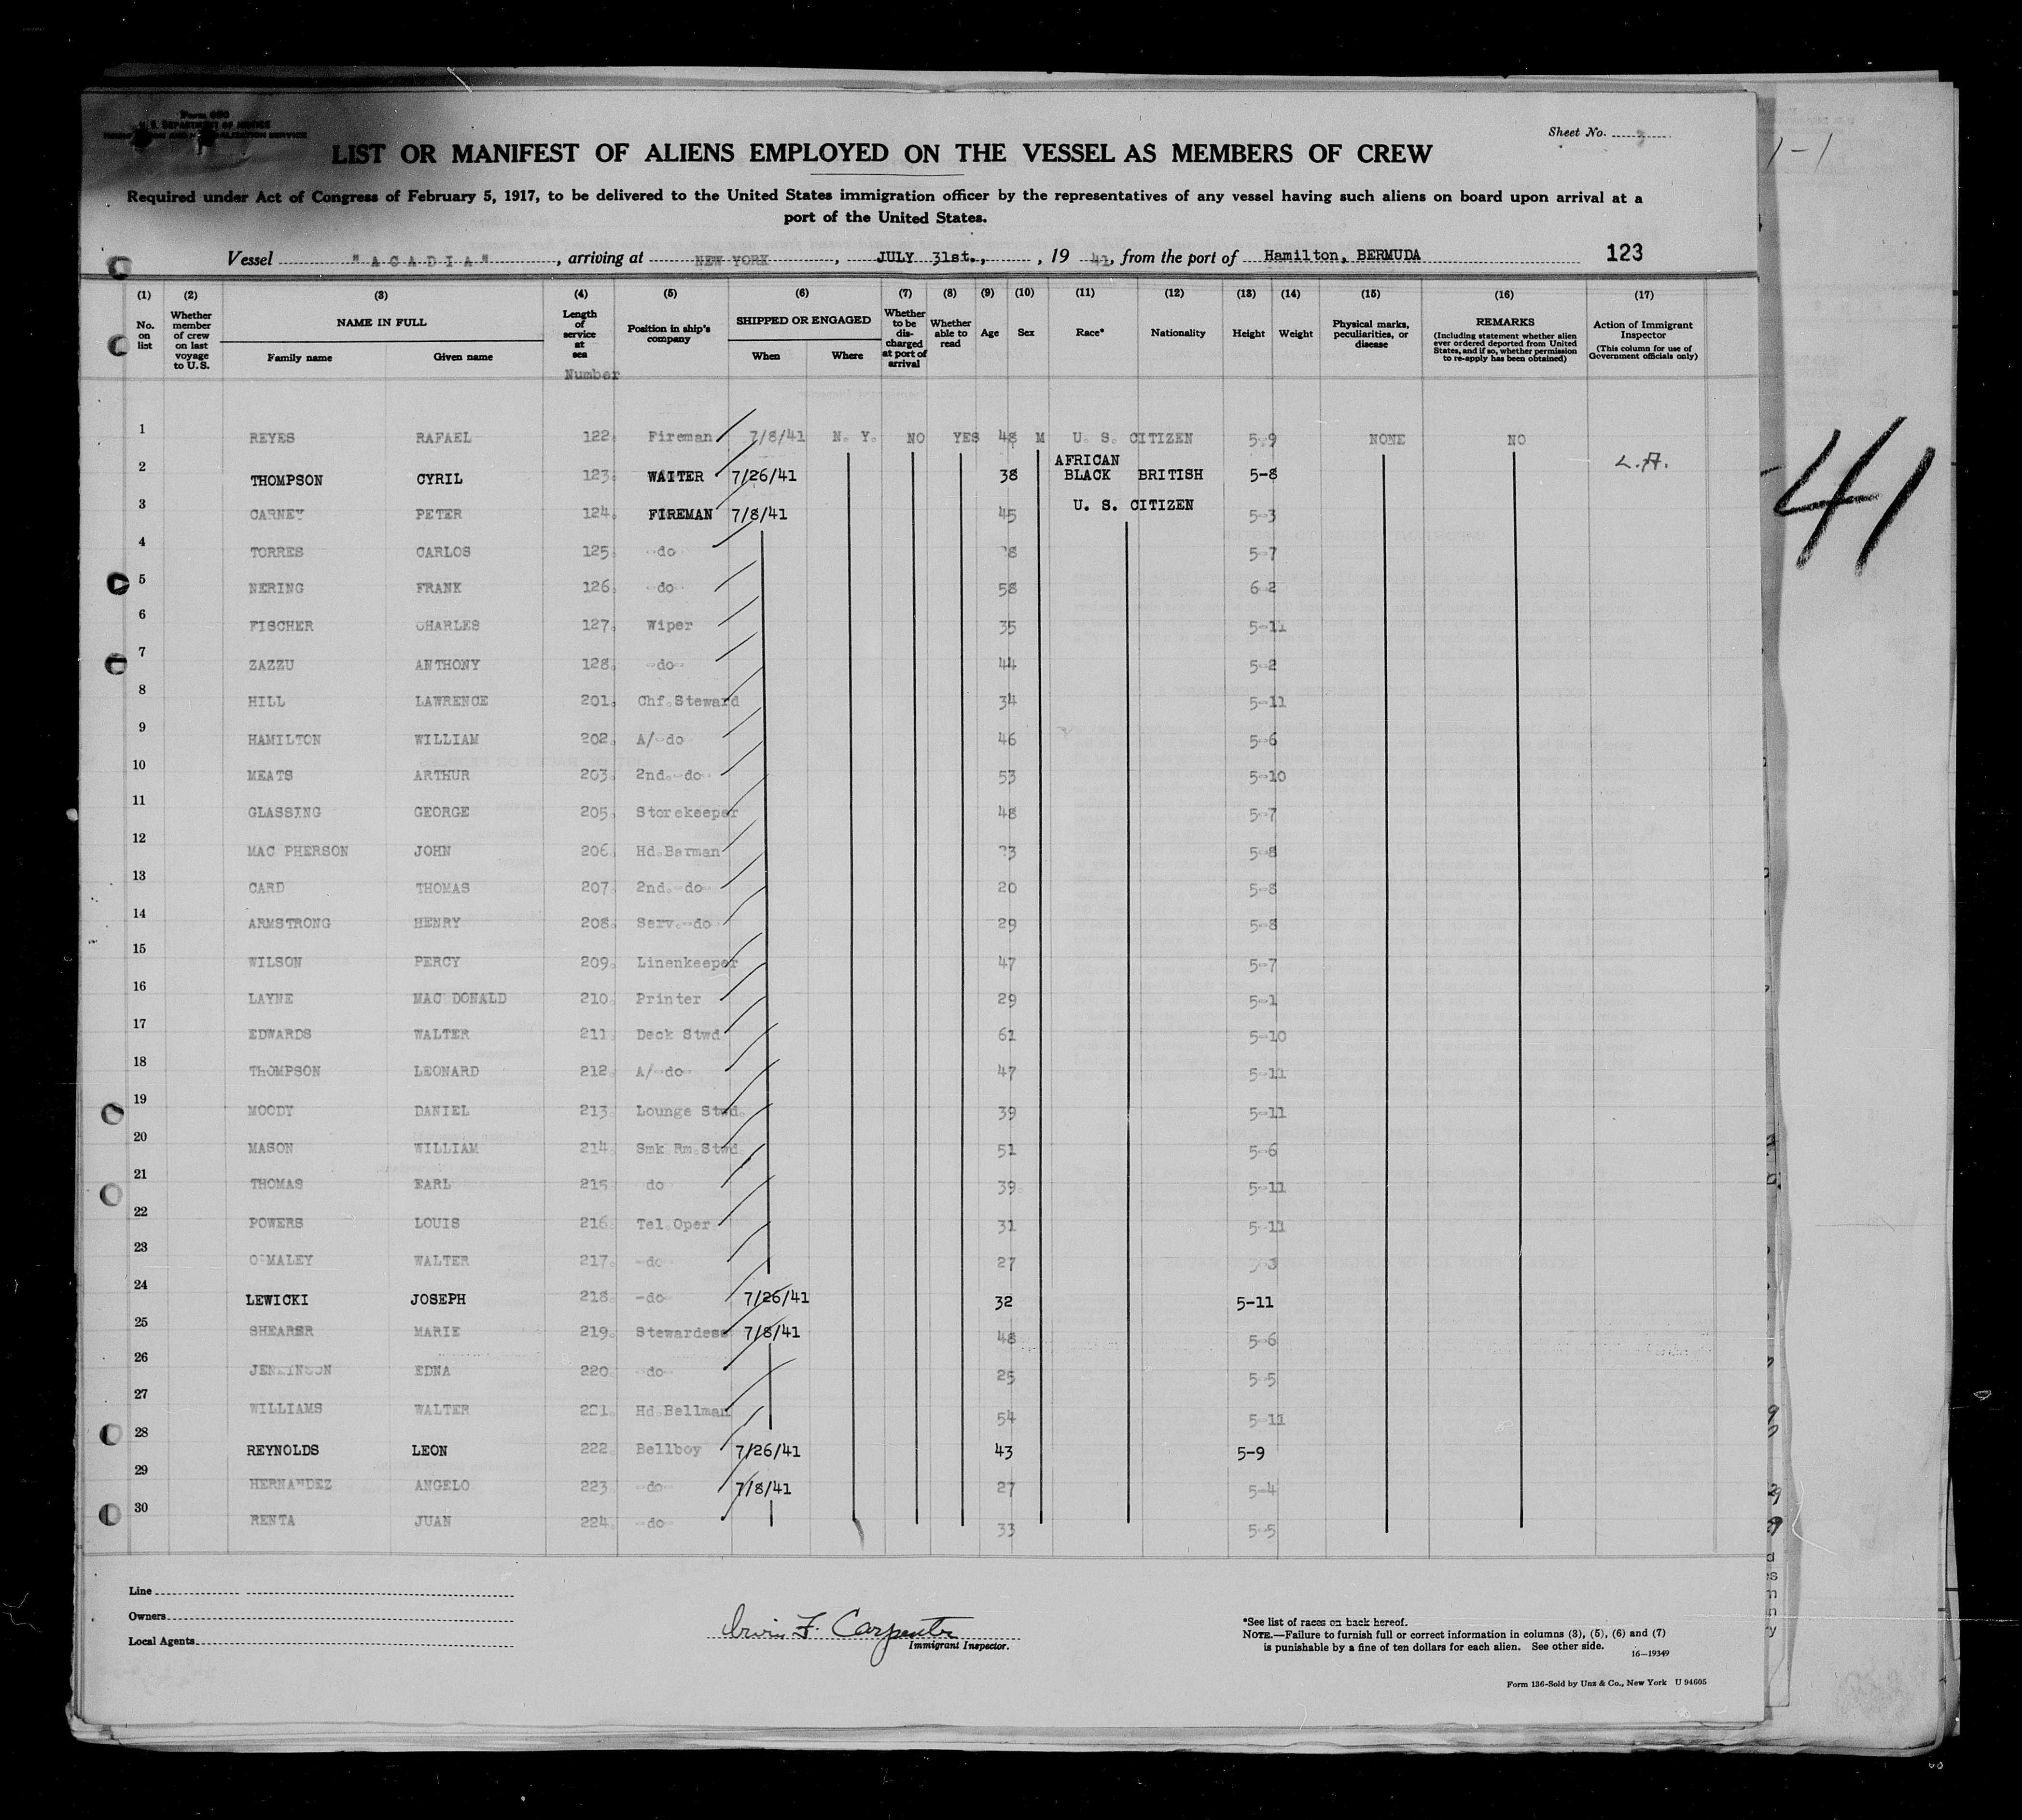 Form 680
U. S. DEPARTMENT OF JUSTICE
IMMIGRATION AND NATURALIZATION SERVICE
Sheet No. 3
LIST OR MANIFEST OF ALIENS EMPLOYED ON THE VESSEL AS MEMBERS OF CREW
Required under Act of Congress of February 5, 1917, to be delivered to the United States immigration officer by the representatives of any vessel having such aliens on board upon arrival at a
port of the United States.
Vessel "ACADIA", arriving at NEW YORK, JULY 31st., , 19 41, from the port of Hamilton, BERMUDA 123
(1) (2) (3) (4) (5) (6) (7) (8) (9) (10) (11) (12) (13) (14) (15) (16) (17)
No. on list
Whether member of crew on last voyage to U. S.
NAME IN FULL
Family name Given name
Length of service at sea
Number
Position in ship's company
SHIPPED OR ENGAGED
When Where
Whether to be discharged at port of arrival
Whether able to read
Age
Sex
Race*
Nationality
Height
Weight
Physical marks, peculiarities, or disease
REMARKS
(Including statement whether alien ever ordered deported from United States, and if so, whether permission to re-apply has been obtained)
Action of Immigrant Inspector
(This column for use of Government officials only)
1 REYES RAFAEL 122. Fireman 7/8/41 N. Y. NO YES 48 M U. S. CITIZEN 5-9 NONE NO
2 THOMPSON CYRIL 123. WAITER 7/26/41 38 AFRICAN BLACK BRITISH 5-8 L.A.
3 CARNEY PETER 124. FIREMAN 7/8/41 45 U. S. CITIZEN 5-3
4 TORRES CARLOS 125. -do- 8 5-7
5 NERING FRANK 126. -do- 58 6-2
6 FISCHER CHARLES 127. Wiper 35 5-11
7 ZAZZU ANTHONY 128. -do- 44 5-2
8 HILL LAWRENCE 201. Chf.Steward 34 5-11
9 HAMILTON WILLIAM 202. A/-do- 46 5-6
10 MEATS ARTHUR 203. 2nd.-do- 53 5-10
11 GLASSING GEORGE 205. Storekeeper 48 5-7
12 MAC PHERSON JOHN 206. Hd.Barman 5-8
13 CARD THOMAS 207. 2nd.-do- 20 5-8
14 ARMSTRONG HENRY 208. Serv.-do- 29 5-8
15 WILSON PERCY 209. Linenkeeper 47 5-7
16 LAYNE MAC DONALD 210. Printer 29 5-1
17 EDWARDS WALTER 211. Deck Stwd. 61 5-10
18 THOMPSON LEONARD 212. A/-do- 47 5-11
19 MOODY DANIEL 213. Lounge Stwd. 39 5-11
20 MASON WILLIAM 214. Smk Rm.Stwd. 51 5-6
21 THOMAS EARL 215. do 39 5-11
22 POWERS LOUIS 216. Tel.Oper 31 5-11
23 O'MALEY WALTER 217. -do- 27
24 LEWICKI JOSEPH 218. -do- 7/26/41 32 5-11
25 SHEARER MARIE 219. Stewardess 7/8/41 48 5-6
26 JENKINSON EDNA 220. -do- 25 5-5
27 WILLIAMS WALTER 221. Hd.Bellman 54 5-11
28 REYNOLDS LEON 222. Bellboy 7/26/41 43 5-9
29 HERNANDEZ ANGELO 223. -do- 7/8/41 27 5-4
30 RENTA JUAN 224. -do- 33 5-5
41
1-1
Line
Owners
Local Agents
Irvin F. Carpenter
Immigrant Inspector.
*See list of races on back hereof.
NOTE.—Failure to furnish full or correct information in columns (3), (5), (6) and (7)
is punishable by a fine of ten dollars for each alien. See other side.
16—19349
Form 136-Sold by Unz & Co., New York U 94605